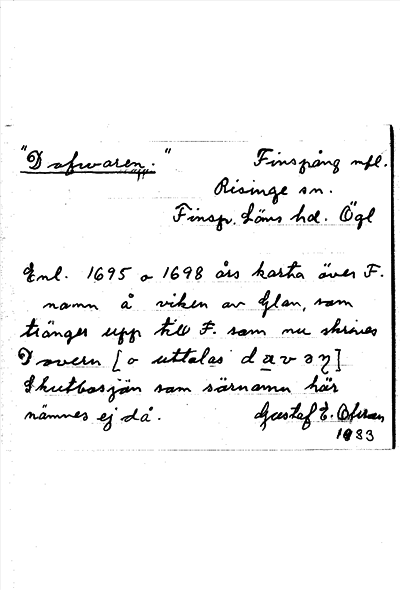 "Dafwaren." Finspång mpl.
Risinge sn.
Finsp. Läns hd. Ögl
Enl. 1695 o 1698 års karta över F.
namn å viken av Glan, som
tränger upp till F. som nu skrives
Dovern [o uttalas
Skutbosjön som särnamn här
nämnes ej då. Gustaf E.
1933